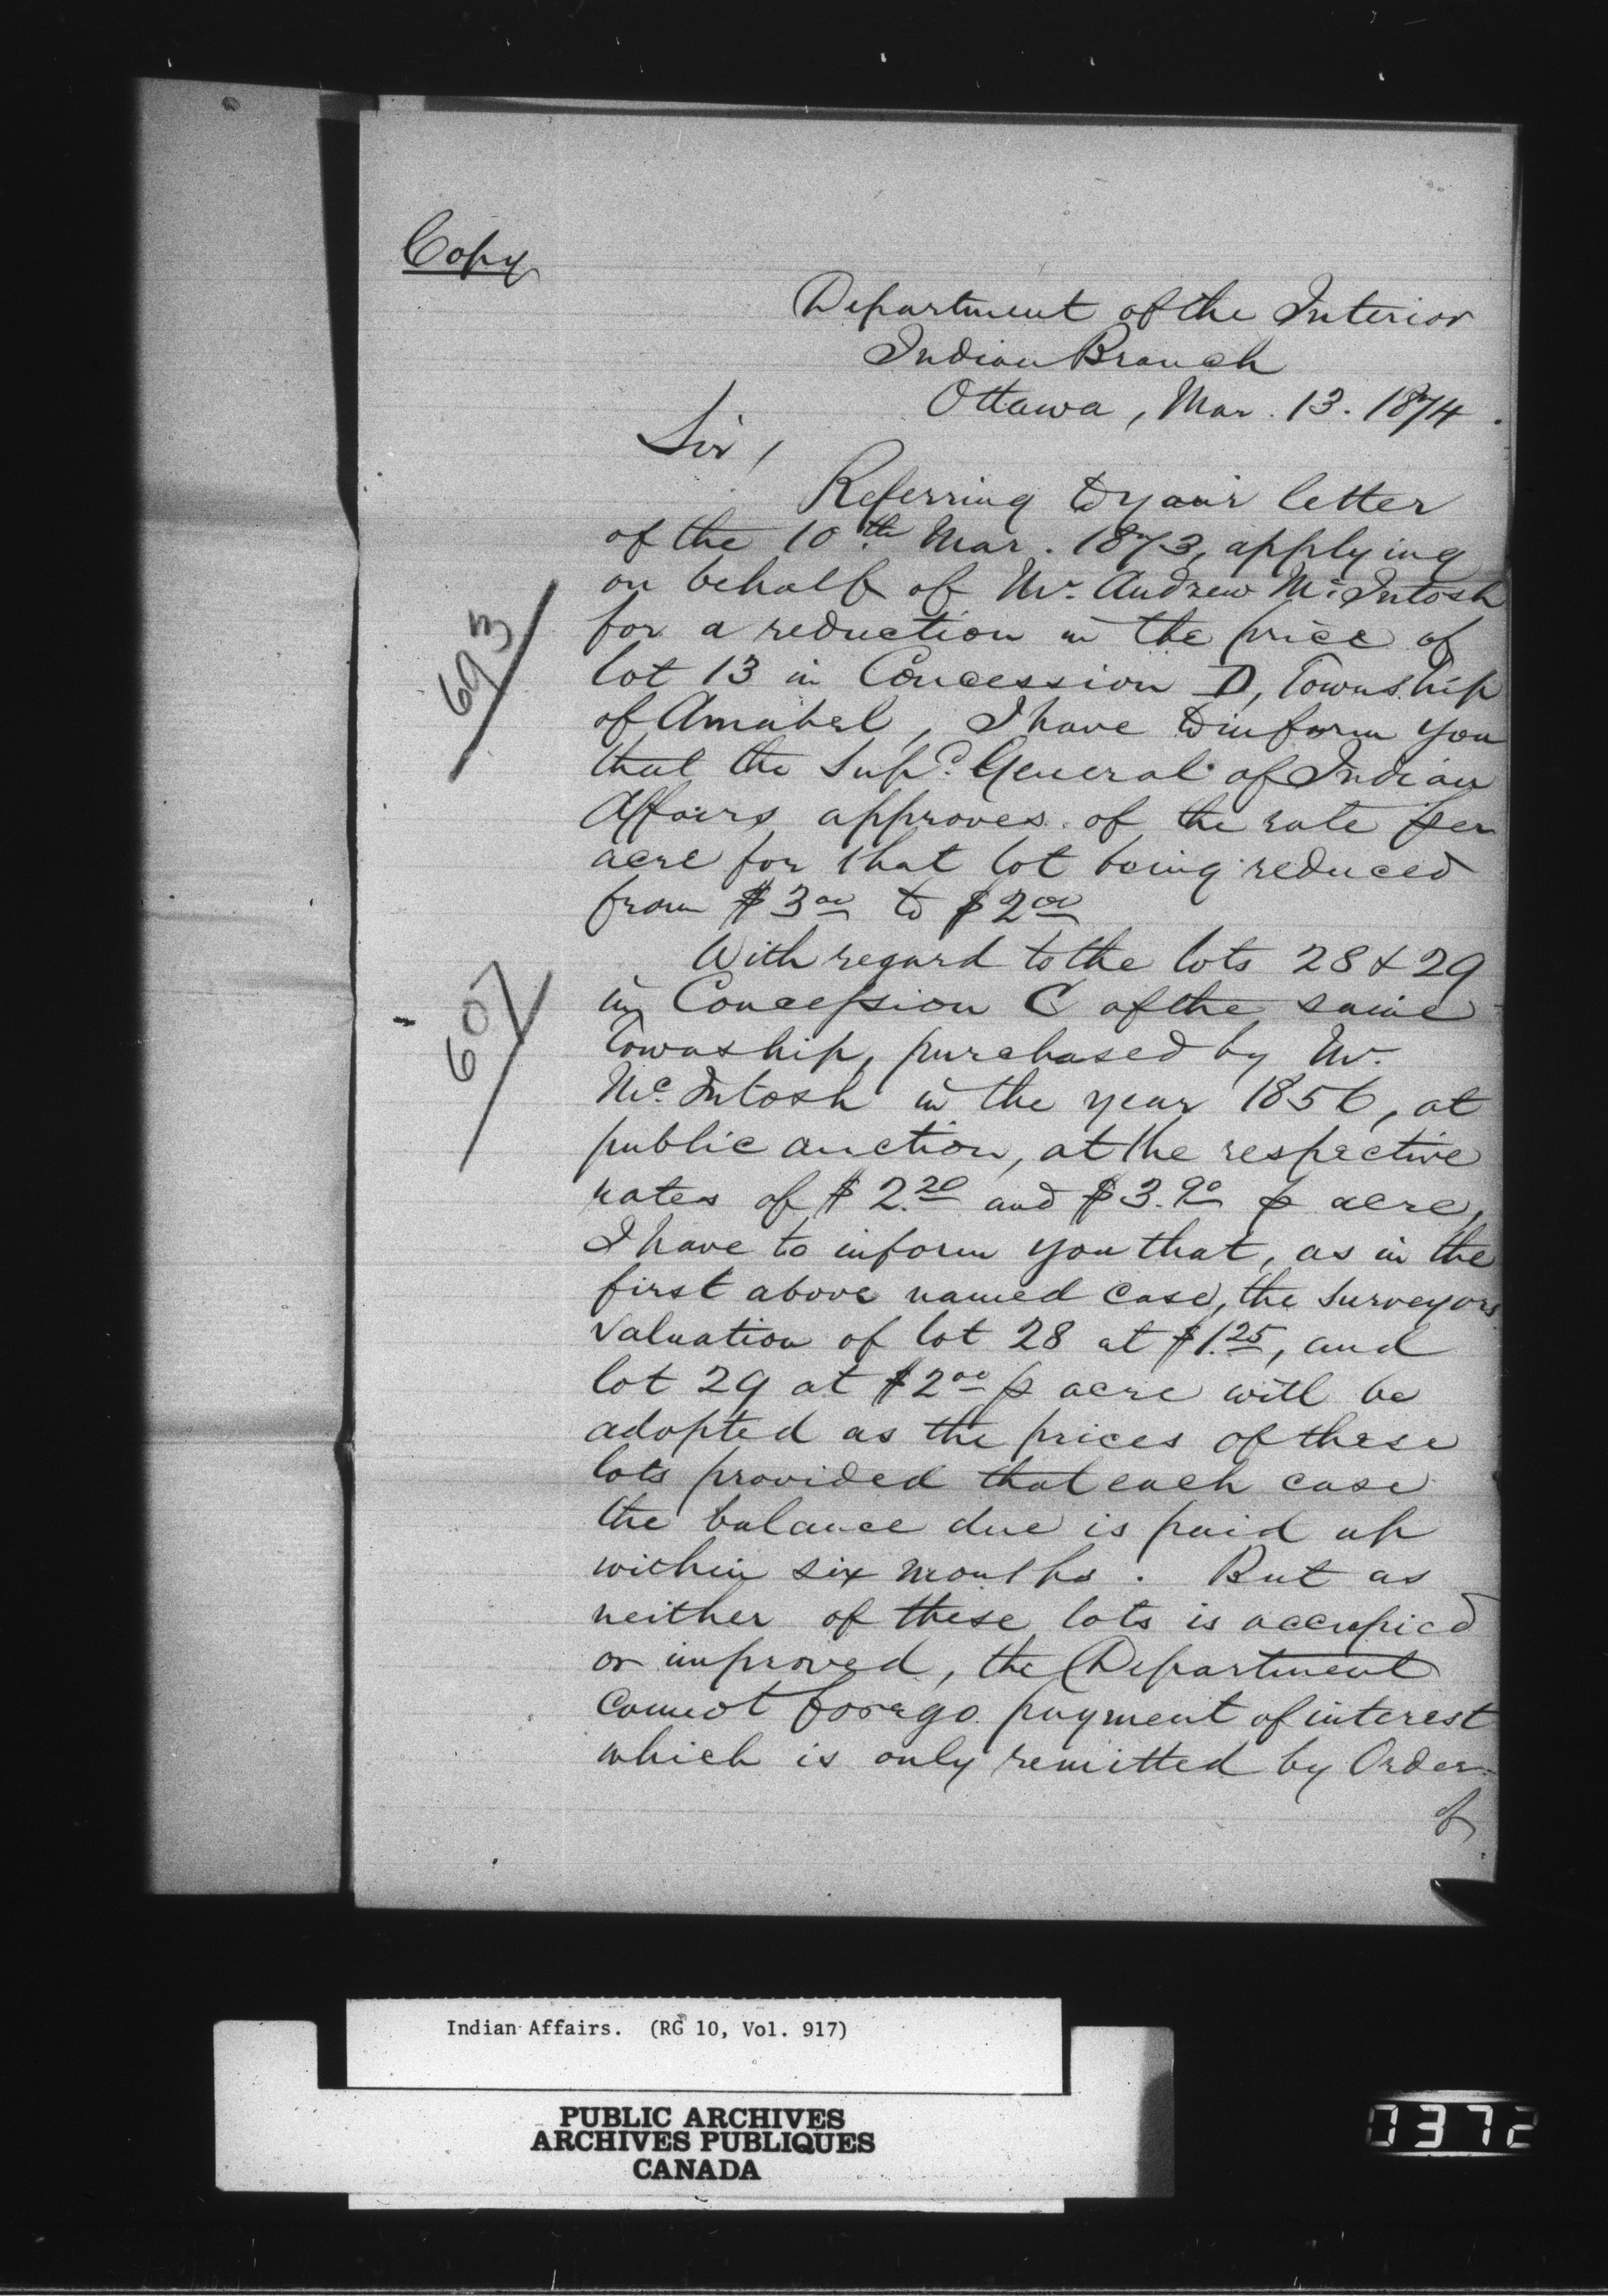 Copy
Department of the Interior
Indian Branch
Ottawa, Mar. 13. 1874.
Sir,
Referring to your letter
of the 10th Mar. 1873, applying
on behalf of Mr. Andrew McIntosh
for a reduction in the price of
lot 13 in Concession D, Township
of Amabel, I have to inform you
that the Supt. General of Indian
Affairs approves of the rate per
acre for that lot being reduced
from $3 00 to $2 00
With regard to the lots 28 & 29
in Concession C of the same
Township, purchased by Mr.
McIntosh in the year 1856, at
public auction, at the respective
rates of $2.20 and $3.90 p acre,
I have to inform you that, as in the
first above named case, the Surveyors
Valuation of lot 28 at $1.25, and
lot 29 at $2 00 p acre will be
adopted as the prices of these
lots provided that each case
the balance due is paid up
within six months. But as
neither of these lots is occupied
or improved, the Department
cannot forego payment of interest
which is only remitted by Order
of
693
607
Indian Affairs. (RG 10, Vol. 917)
PUBLIC ARCHIVES
ARCHIVES PUBLIQUES
CANADA
0372